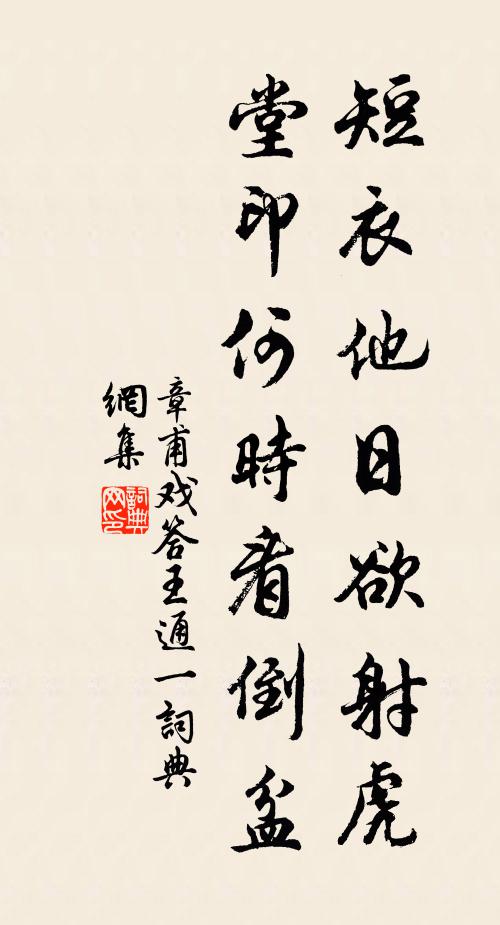 短衣他日欲射虎
堂印何時看倒盆
章甫戏答王通一詞典
網集
詞典网印